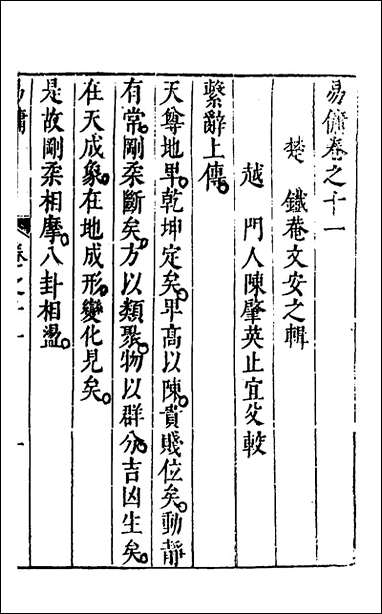 易傭卷之十一
楚 鐵菴文安之輯
越 門人陳肇英止宜父較
繫辭上傳。
天尊地卑。乾坤定矣。卑高以陳。貴賤位矣。動靜
有常。剛柔斷矣。方以類聚。物以群分。吉凶生矣。
在天成象。在地成形。變化見矣。
是故剛柔相摩。八卦相盪。
易傭 卷之十一 一